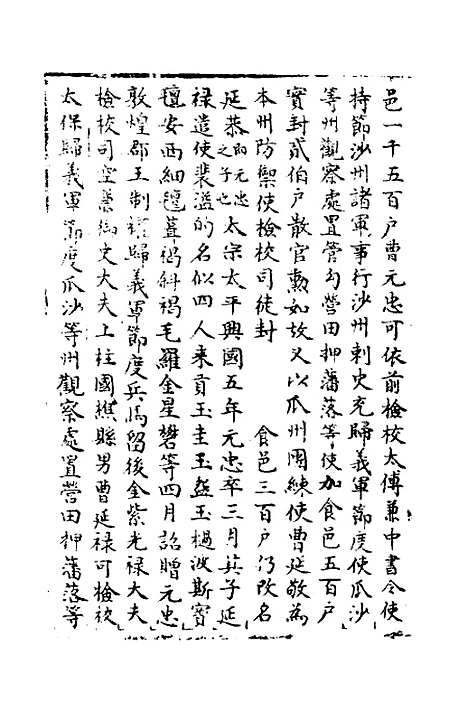 邑一千五百户曹元忠可依前檢校太傅兼中書令使
持節沙州諸軍事行沙州刺史充歸義軍節度使瓜沙
等州觀察處置管勾營田押蕃落等使加食邑五百户
實封貳伯户散官勲如故又以瓜州團練使曹延敬為
本州防禦使檢校司徒封　食邑三百户仍改名
延恭即元忠之子也太宗太平興國五年元忠卒三月其子延
禄遣使裴溢的名似四人来貢玉圭玉盌玉檛波斯寳
氊安西細氊葺褐斜褐毛羅金星礬等四月詔贈元忠
敦煌郡王制權歸義軍節度兵馬留後金紫光禄大夫
檢校司空兼御史大夫上柱國譙縣男曹延禄可檢校
太保歸義軍節度瓜沙等州觀察處置營田押蕃落等